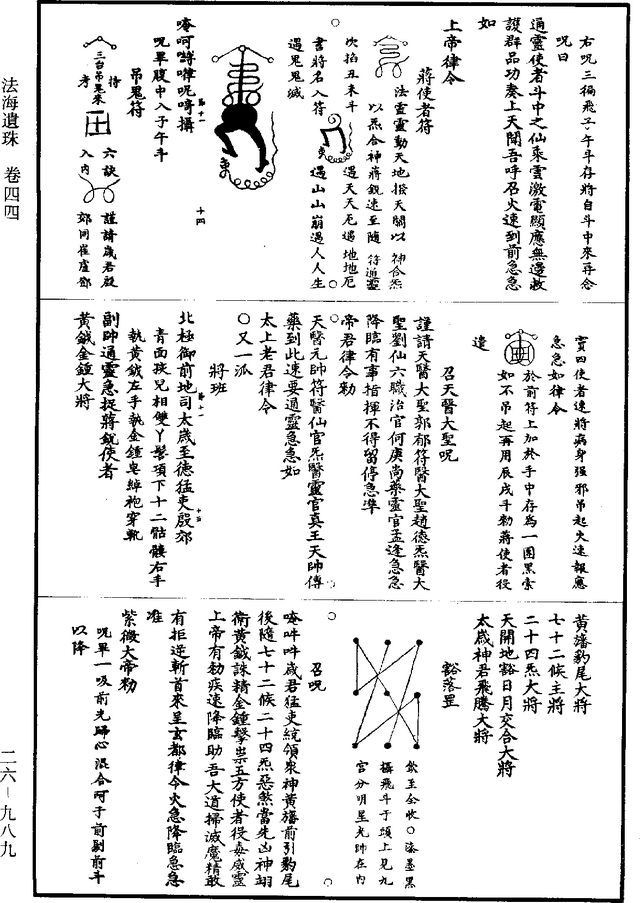 右呪三徧飛子午斗存將自斗中來再念
呪曰
通靈使者斗中之仙乘雲激電顯應無邊救
護群品功奏上天聞吾呼召火速到前急急
如
上帝律令
蔣使者符
法靈靈動天地撥天關以神合炁
以炁合神蔣銳速至隨符通靈
次掐丑未斗
遇天天厄遇地地厄
書將名入符
遇山山崩遇人人生
遇鬼鬼滅
唵呵𠸄嘩呪嗬攝
呪畢腹中入子午斗
吊鬼符
三台吊鬼來
持
考
六訣
入內
謹請歲君殷
郊同崔盧鄧
竇四使者速將病身强邪吊起火速報應
急急如律令
於前符上加於手中存為一團黑索
如不吊起再用辰戌斗勑蔣使者役
違
召天醫大聖呪
謹請天醫大聖郭郁符醫大聖趙德炁醫大
聖劉仙六職治官何庚尚藥靈官孟逢急急
降臨有事指揮不得留停急準
帝君律令勑
天醫元帥符醫仙官炁醫靈官真王天帥傳
藥到此速要通靈急急如
太上老君律令
○又一派
將班
北極御前地司太歲至德猛吏殷郊
青面孩兒相雙丫髻項下十二骷髏右手
執黃鉞左手執金鍾皂綽袍穿靴
副帥通靈急捉蔣銳使者
黃鉞金鍾大將
黃旛豹尾大將
七十二候主將
二十四炁大將
天開地豁日月交合大將
太歲神君飛騰大將
豁落罡
欽至全收○潑墨黑
攝飛斗于頭上見九
宮分明星光帥在內
召呪
唵吽吽歲君猛吏統領衆神黃旛前引豹尾
後隨七十二候二十四炁惡煞當先凶神翊
衛黃鉞誅精金鍾擊祟五方使者役毒威靈
上帝有勑疾速降臨助吾大道掃滅魔精敢
有拒逆斬首來呈玄都律令火急降臨急急
准
紫微大帝勑
呪畢一吸前光歸心混合呵于前剔前斗
以降
法海遺珠 卷四四
二六－九八九
十四
十五